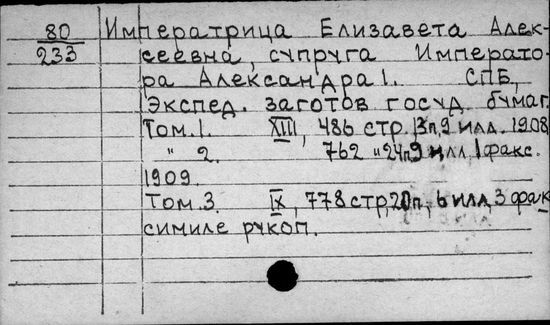 80 Императрица Елизавета Алек-
233 сеевна, супруга Императо-
ра Александра 1. СПБ,
Экспед. заготов госуд. бумаг.
Том. 1. XIII, 486 стр. 13п, 9 илл. 1908
" 2. 762 " 24п 9 илл, 1 факс.
1909.
Том. 3. IX, 778 стр, 20п, 6 илл, 3 фак
симиле рукоп.